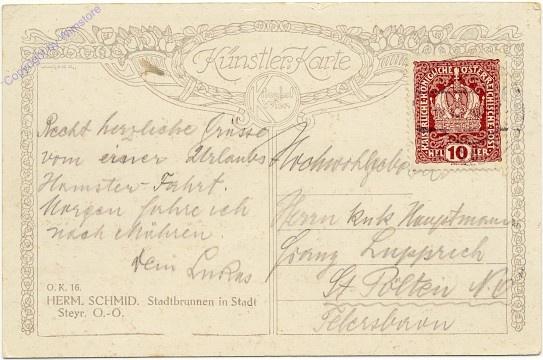 Copyright by wnmstore
Künstler-Karte
KAISERLICHE KÖNIGLICHE ÖSTERREICHISCHE POST
HELLER
10
Recht herzliche Grüsse
vom einer Urlaubs
Hamster-Fahrt.
Morgen fahre ich
nach Mähren.
Dein Lukas
Hochwohlgeboren
Herrn kuk Hauptmann
Franz Lupprich
St Pölten N.Ö
O. K. 16.
HERM. SCHMID. Stadtbrunnen in Stadt
Steyr. O.-Ö.